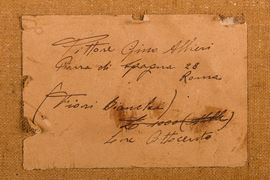 Pittore Gino Albieri
Piazza di Spagna 28
Roma
(Fiori bianchi)
Lire Ottocento